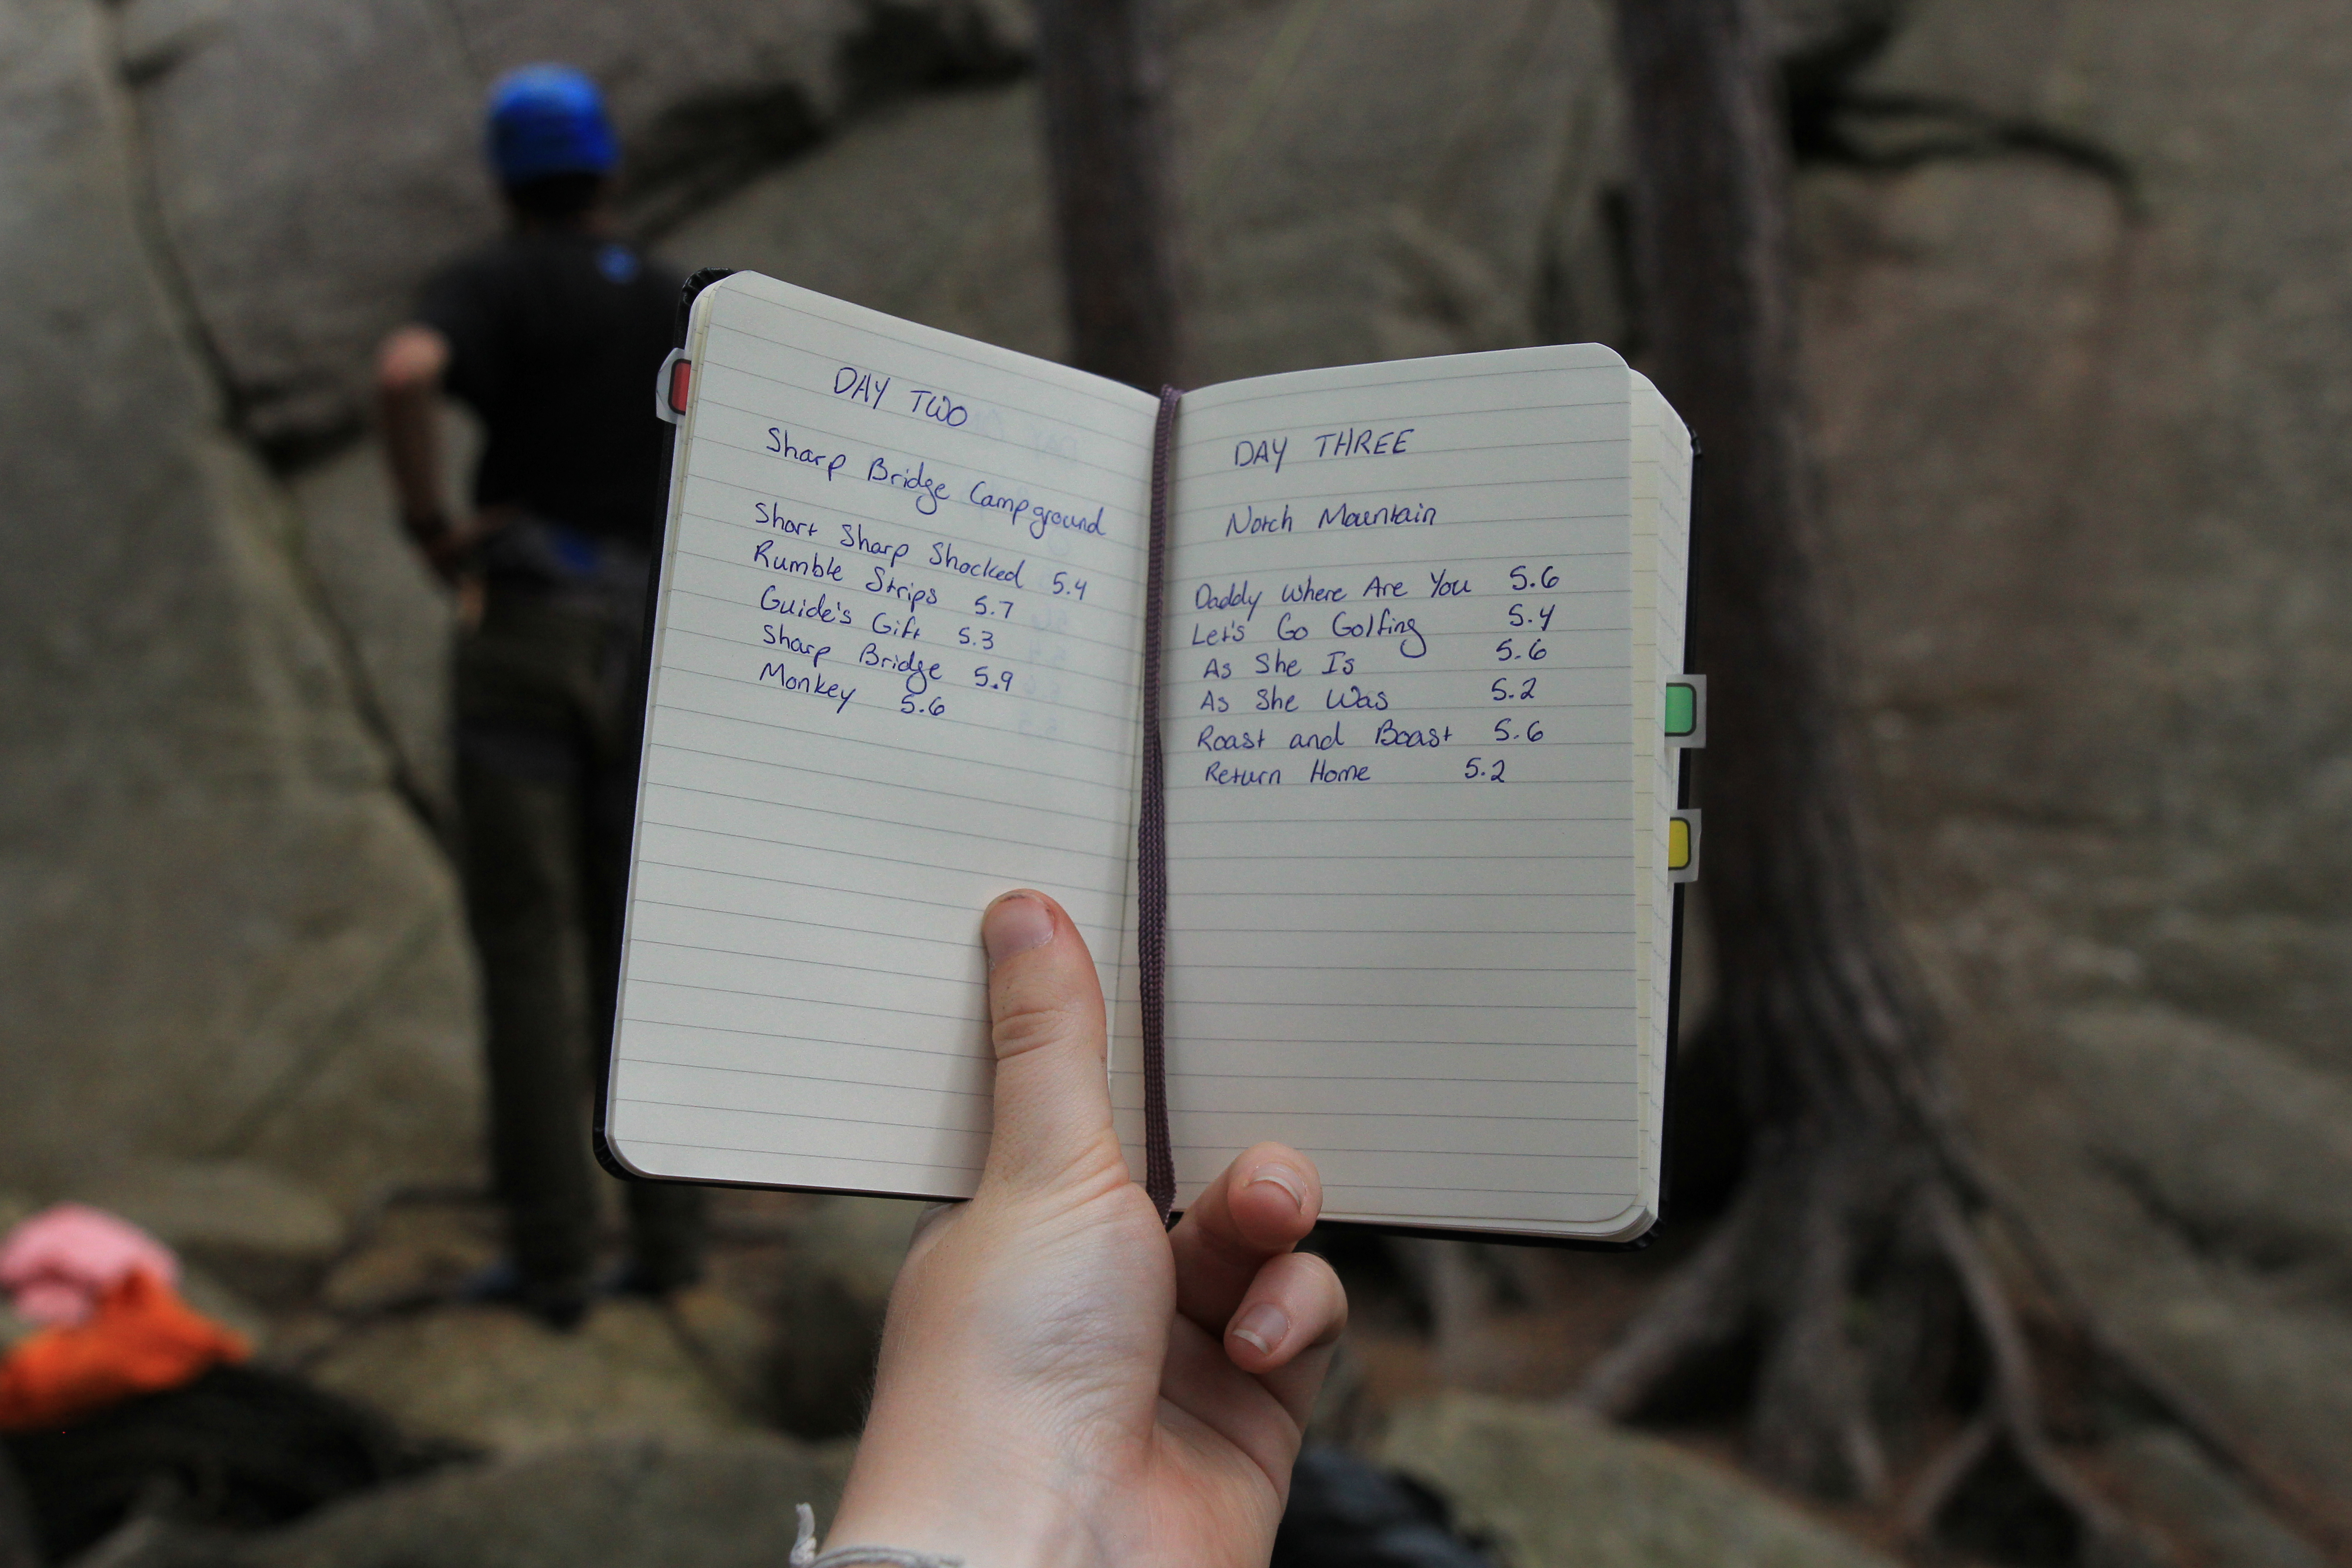 DAY TWO
Sharp Bridge Campground
Short Sharp Shocked 5.4
Rumble Strips 5.7
Guide's Gift 5.3
Sharp Bridge 5.9
Monkey 5.6
DAY THREE
Notch Mountain
Daddy Where Are You 5.6
Let's Go Golfing 5.4
As She Is 5.6
As She Was 5.2
Roast and Boast 5.6
Return Home 5.2